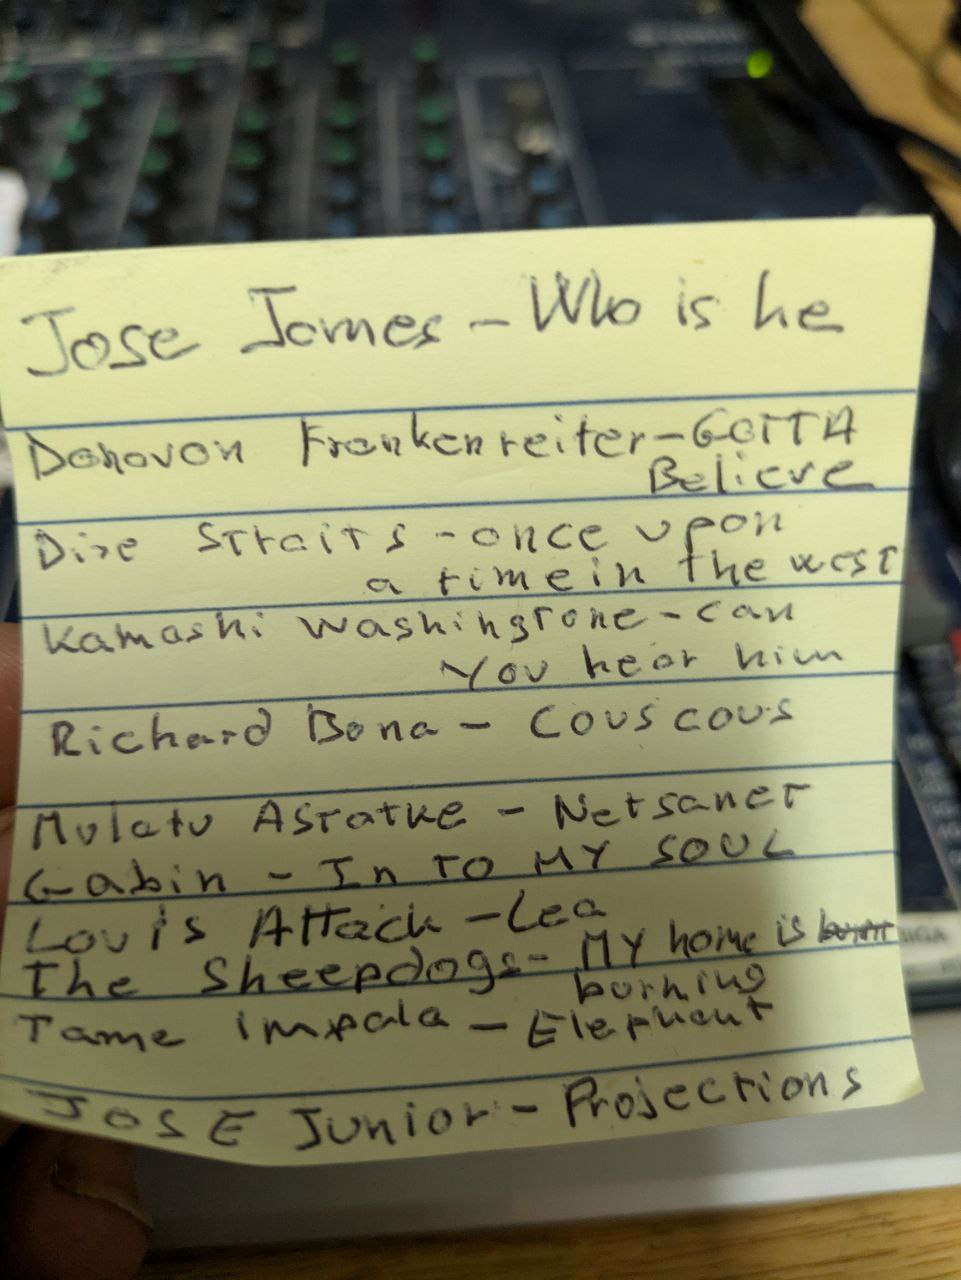 Jose James - Who is he
Donovon Frankenreiter - GOTTA
Believe
Dire Straits - once upon
a time in the west
Kamashi Washingtone - can
You hear him
Richard Bona - Couscous
Mulatu Astatke - Netsanet
Gabin - In TO MY SOUL
Louis Attack - Lea
The Sheepdogs - MY home is
burning
Tame impala - Elephant
JOSE Junior - Projections